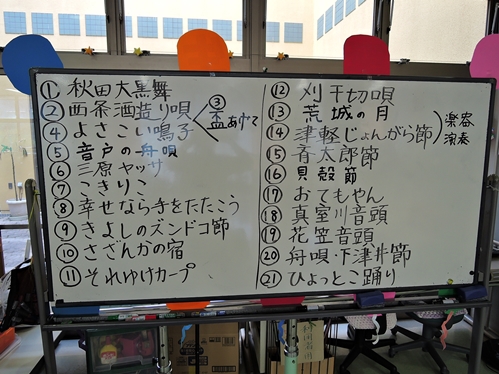 ① 秋田大黒舞
② 西条酒造り唄
③ 盃あげて
④ よさこい鳴子
⑤ 音戸の舟唄
⑥ 三原ヤッサ
⑦ こきりこ
⑧ 幸せなら手をたたこう
⑨ きよしのズンドコ節
⑩ さざんかの宿
⑪ それゆけカープ
⑫ 刈干切唄
⑬ 荒城の月
⑭ 津軽じょんがら節
楽器
演奏
⑮ 斉太郎節
⑯ 貝殻節
⑰ おてもやん
⑱ 真室川音頭
⑲ 花笠音頭
⑳ 舟唄・下津井節
㉑ ひょっとこ踊り